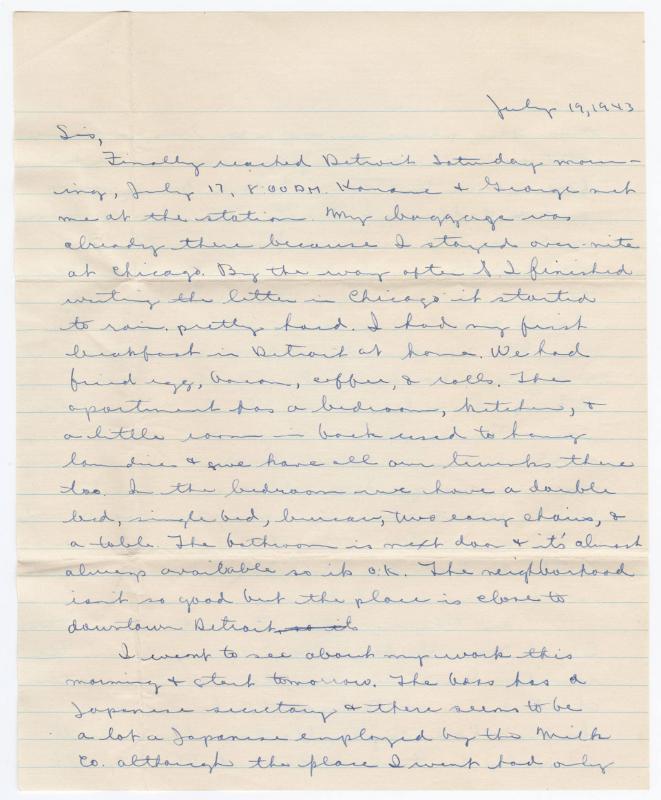 July 19, 1943
Sis,
Finally reached Detroit Saturday morn-
ing, July 17, 8:00 AM. Kanane & George met
me at the station. My baggage was
already there because I stayed over-nite
at Chicago. By the way after I finished
writing the letter in Chicago it started
to rain pretty hard. I had my first
breakfast in Detroit at home. We had
fried egg, bacon, coffee, & rolls. The
apartment has a bedroom, kitchen, &
a little room in back used to hang
laundries & we have all our trunks there
too. In the bedroom we have a double
bed, single bed, bureau, two easy chairs, &
a table. The bathroom is next door & it's almost
always available so its o.k. The neighborhood
isn't so good but the place is close to
downtown Detroit, so it's
I went to see about my work this
morning & start tomorrow. The boss has a
Japanese secretary & there seems to be
a lot a Japanese employed by the Milk
Co. although the place I went had only